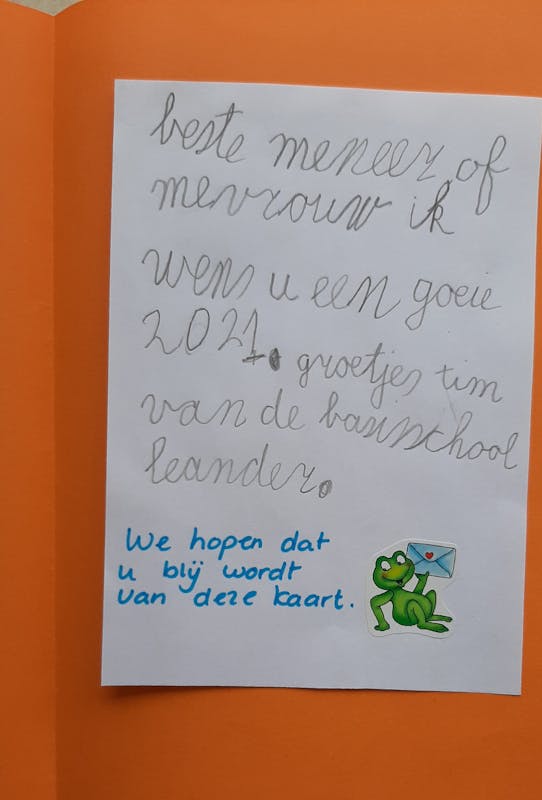 beste meneer of
mevrouw ik
wens u een goeie
2021. groetjes tim
van de basisschool
leander.
We hopen dat
u blij wordt
van deze kaart.